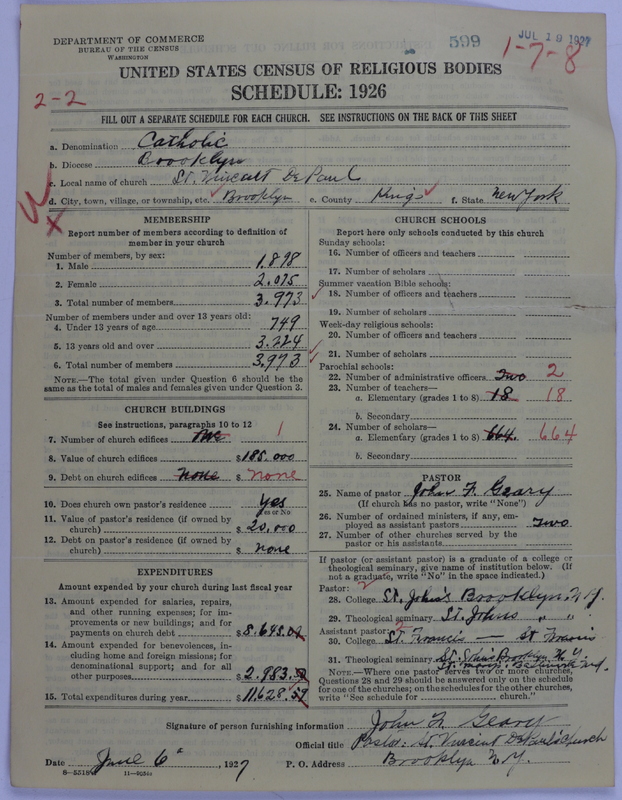 DEPARTMENT OF COMMERCE
BUREAU OF THE CENSUS
WASHINGTON
599
JUL 19 1927
1-7-8
UNITED STATES CENSUS OF RELIGIOUS BODIES
SCHEDULE: 1926
2-2
FILL OUT A SEPARATE SCHEDULE FOR EACH CHURCH. SEE INSTRUCTIONS ON THE BACK OF THIS SHEET
a. Denomination Catholic
b. Diocese Brooklyn
c. Local name of church St. Vincent De Paul
d. City, town, village, or township, etc. Brooklyn e. County Kings f. State New York
MEMBERSHIP
Report number of members according to definition of
member in your church
Number of members, by sex:
1. Male 1.898
2. Female 2.075
3. Total number of members 3.973
Number of members under and over 13 years old:
4. Under 13 years of age 749
5. 13 years old and over 3.224
6. Total number of members 3.973
NOTE.—The total given under Question 6 should be the
same as the total of males and females given under Question 3.
CHURCH BUILDINGS
See instructions, paragraphs 10 to 12
7. Number of church edifices One 1
8. Value of church edifices $185.000
9. Debt on church edifices none $ none
10. Does church own pastor's residence? Yes
Yes or No
11. Value of pastor's residence (if owned by
church) $ 20,000
12. Debt on pastor's residence (if owned by
church) $ none
EXPENDITURES
Amount expended by your church during last fiscal year
13. Amount expended for salaries, repairs,
and other running expenses; for im-
provements or new buildings; and for
payments on church debt $ 8.645.09
14. Amount expended for benevolences, in-
cluding home and foreign missions; for
denominational support; and for all
other purposes $ 2.983.50
15. Total expenditures during year $ 11.628.59
CHURCH SCHOOLS
Report here only schools conducted by this church
Sunday schools:
16. Number of officers and teachers
17. Number of scholars
Summer vacation Bible schools:
18. Number of officers and teachers
19. Number of scholars
Week-day religious schools:
20. Number of officers and teachers
21. Number of scholars
Parochial schools:
22. Number of administrative officers Two 2
23. Number of teachers—
a. Elementary (grades 1 to 8) 18 18
b. Secondary
24. Number of scholars—
a. Elementary (grades 1 to 8) 664. 664
b. Secondary
PASTOR
25. Name of pastor John F. Geary
(If church has no pastor, write "None")
26. Number of ordained ministers, if any, em-
ployed as assistant pastors Two
27. Number of other churches served by the
pastor or his assistants
If pastor (or assistant pastor) is a graduate of a college or
theological seminary, give name of institution below. (If
not a graduate, write "No" in the space indicated.)
Pastor: 2
28. College St. John's Brooklyn N.Y.
29. Theological seminary St. Johns " "
Assistant pastor: 2
30. College St. Francis — St Francis
31. Theological seminary St. John's Brooklyn N.Y.
St. Mary's Baltimore Md.
NOTE.—Where one pastor serves two or more churches,
Questions 28 and 29 should be answered only on the schedule
for one of the churches; on the schedules for the other churches,
write "See schedule for church."
Signature of person furnishing information John F. Geary
Official title Pastor. St. Vincent De Paul Church
Date June 6th, 1927 P. O. Address Brooklyn N.Y.